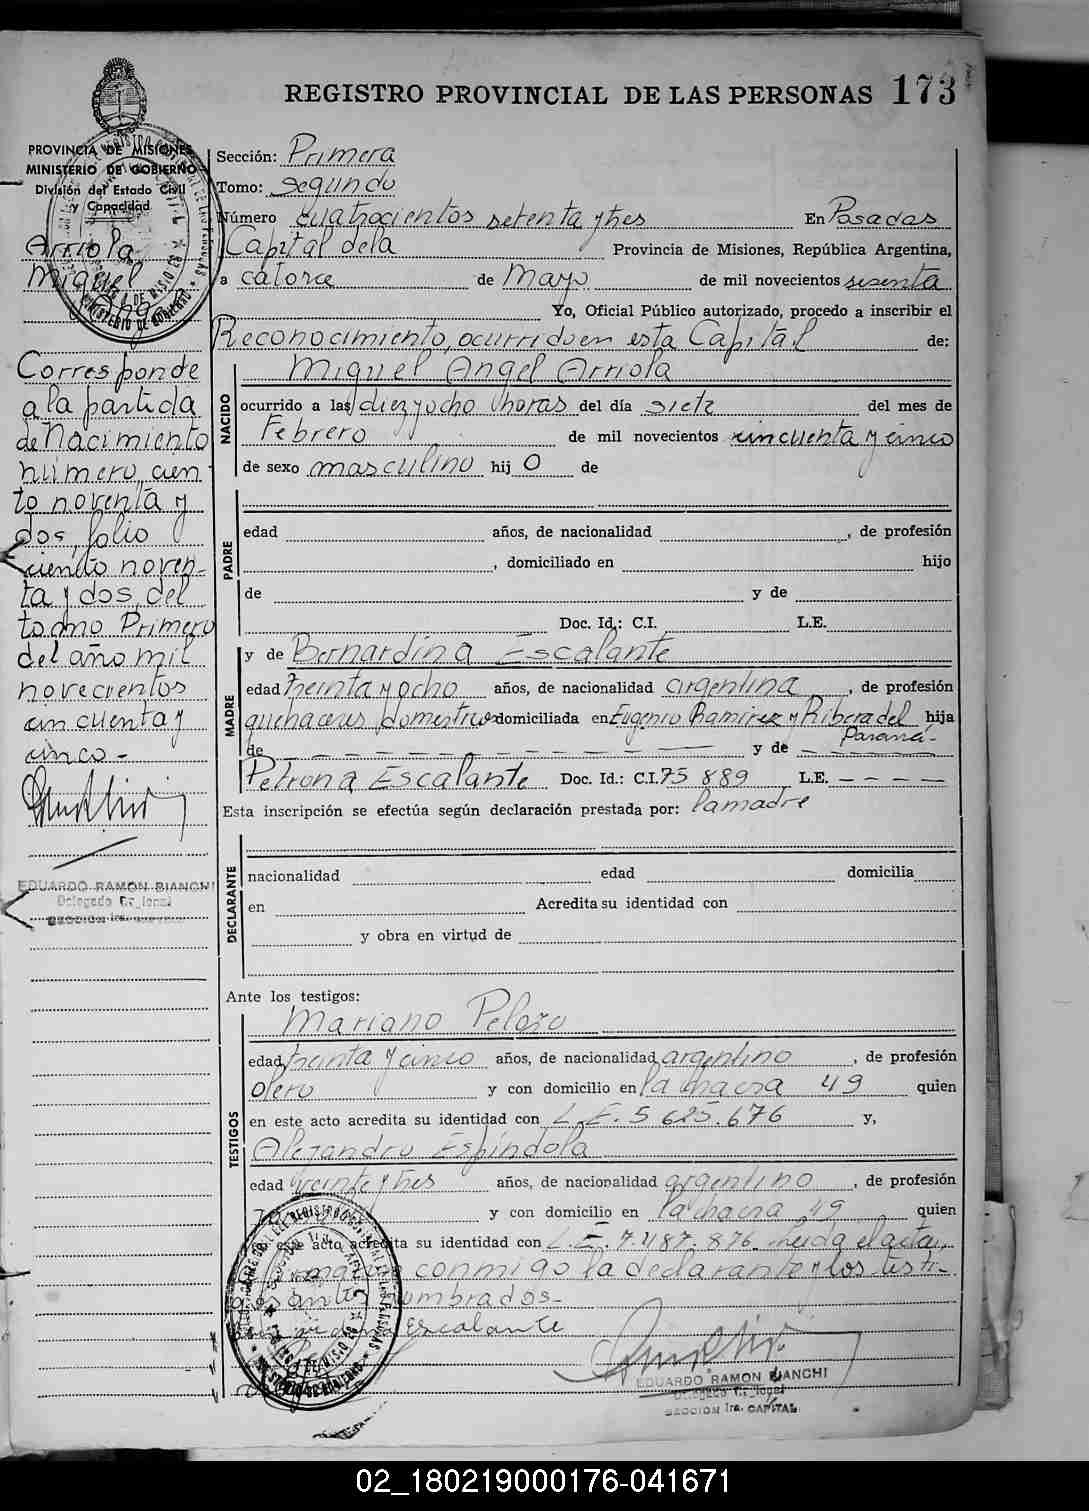 REGISTRO PROVINCIAL DE LAS PERSONAS 173
PROVINCIA DE MISIONES
MINISTERIO DE GOBIERNO
División del Estado Civil
y Capacidad
Arriola
Miguel
Angel
Corresponde
a la partida
de Nacimiento
número cien
to noventa y
dos, folio
ciento noven-
ta y dos, del
tomo Primero
del año mil
novecientos
cincuenta y
cinco -
EDUARDO RAMON BIANCHI
Sección: Primera
Tomo: segundo
Número cuatrocientos setenta y tres En Posadas
Capital de la Provincia de Misiones, República Argentina,
a catorce de Mayo de mil novecientos sesenta
Yo, Oficial Público autorizado, procedo a inscribir el
Reconocimiento, ocurrido en esta Capital de:
NACIDO
Miguel Angel Arriola
ocurrido a las diez y ocho horas del día siete del mes de
Febrero de mil novecientos cincuenta y cinco
de sexo masculino hij o de
PADRE
edad años, de nacionalidad , de profesión
, domiciliado en hijo
de y de
Doc. Id.: C.I. L.E.
MADRE
y de Bernardina Escalante
edad treinta y ocho años, de nacionalidad argentina , de profesión
quehaceres domesticos domiciliada en Eugenio Ramirez y Ribera del hija
Paraná-
de — — — — — — — — y de — — — —
Petrona Escalante Doc. Id.: C.I. 75 889 L.E. — — — —
Esta inscripción se efectúa según declaración prestada por: la madre
DECLARANTE
nacionalidad edad domicilia
en Acredita su identidad con
y obra en virtud de
Ante los testigos:
TESTIGOS
Mariano Pelozo
edad treinta y cinco años, de nacionalidad argentino , de profesión
olero y con domicilio en la chacra 49 quien
en este acto acredita su identidad con L.E. 5 625.676 y,
Alejandro Espíndola
edad veinte y tres años, de nacionalidad argentino , de profesión
y con domicilio en la chacra 49 quien
en este acto acredita su identidad con L.E. 7.487.876. Leida el acta,
conmigo la declarante y los testi-
nombrados-
Escalante
EDUARDO RAMON BIANCHI
SECCION 1ra. CAPITAL
02_180219000176-041671